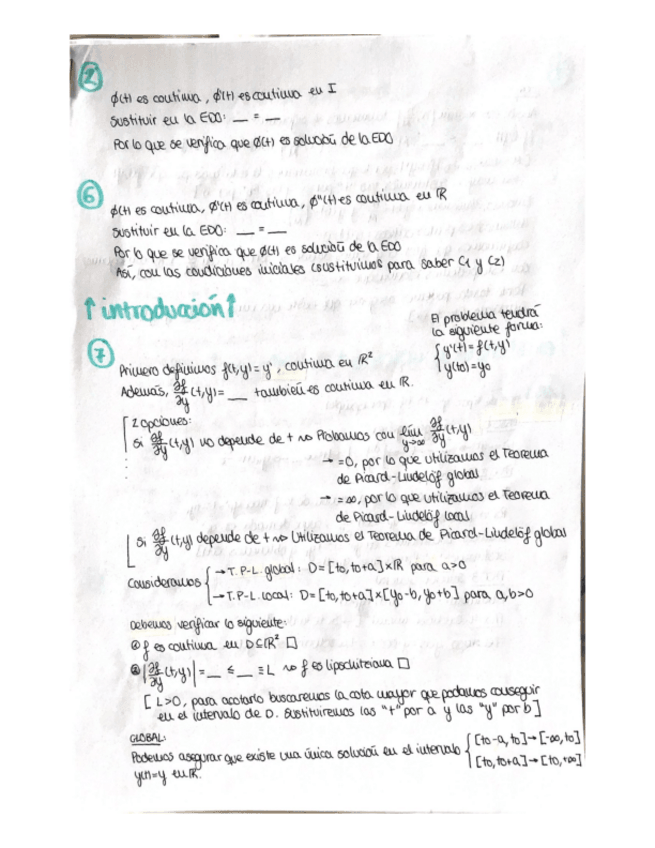 1
ϕ(t) es continua, ϕ'(t) es continua en I
Sustituir en la EDO: __ = __
Por lo que se verifica que ϕ(t) es solución de la EDO
6
ϕ(t) es continua, ϕ'(t) es continua, ϕ''(t) es continua en ℝ
Sustituir en la EDO: __ = __
Por lo que se verifica que ϕ(t) es solución de la EDO
Así, con las condiciones iniciales (sustituimos para saber C1 y C2)
↑ introducción ↑
El problema tendrá
la siguiente forma:
{ y'(t) = f(t,y)
y(t0) = y0
7
Primero definimos f(t,y) = y', continua en ℝ²
Además, ∂f/∂y (t,y) = __ también es continua en ℝ.
[ 2 opciones:
Si ∂f/∂y (t,y) no depende de t ⇝ Probamos con lim y→∞ ∂f/∂y (t,y)
→ = 0, por lo que utilizamos el Teorema
de Picard-Lindelöf global
→ = ∞, por lo que utilizamos el Teorema
de Picard-Lindelöf local
Si ∂f/∂y (t,y) depende de t ⇝ Utilizamos el Teorema de Picard-Lindelöf global
Consideramos { → T.P-L. global: D = [t0, t0+a] × ℝ para a>0
→ T.P-L. local: D = [t0, t0+a] × [y0-b, y0+b] para a,b>0
Debemos verificar lo siguiente:
① f es continua en D⊆ℝ² □
② |∂f/∂y (t,y)| = __ ≤ __ ≡ L ⇝ f es lipschitziana □
[ L>0, para acotarlo buscaremos la cota mayor que podamos conseguir
en el intervalo de D. Sustituiremos las "t" por a y las "y" por b ]
GLOBAL:
Podemos asegurar que existe una única solución en el intervalo { [t0-a, t0] → [-∞, t0]
[t0, t0+a] → [t0, +∞]
y(t)=y en ℝ.